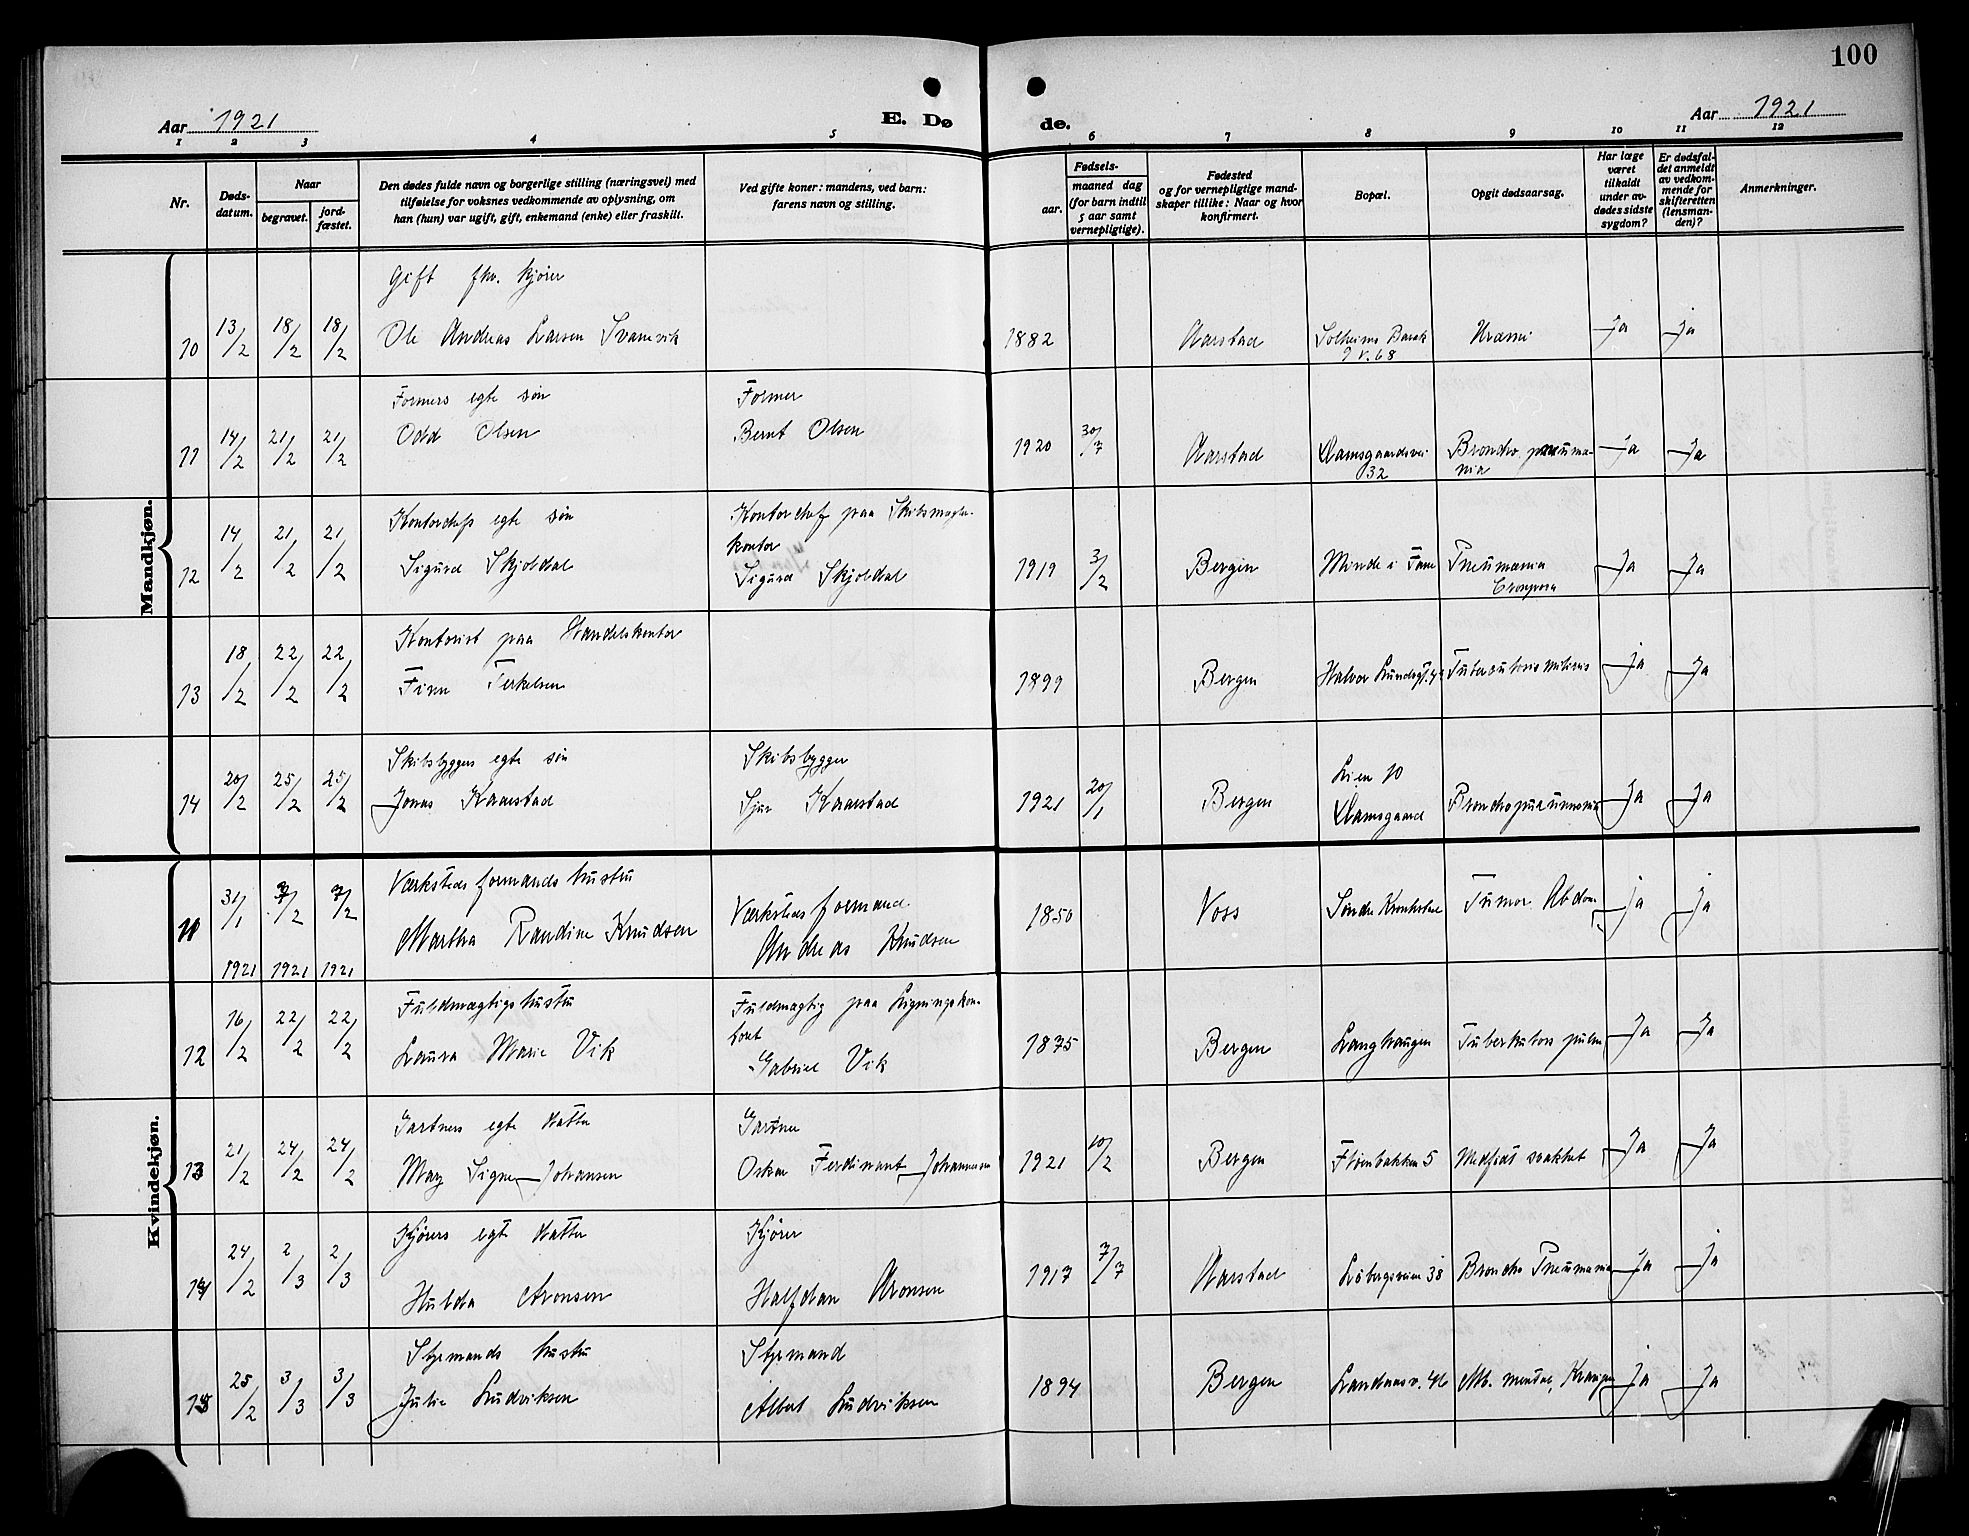 100
Aar 1921
E. Dø
de.
Aar 1921
1 2 3 4 5 6 7 8 9 10 11 12
Nr.
Døds-
datum.
Naar
begravet.
jord-
fæstet.
Den dødes fulde navn og borgerlige stilling (næringsvei) med
tilføielse for voksnes vedkommende av oplysning, om
han (hun) var ugift, gift, enkemand (enke) eller fraskilt.
Ved gifte koner: mandens, ved barn:
farens navn og stilling.
Fødsels-
aar.
maaned dag
(for barn indtil
5 aar samt
vernepligtige).
Fødested
og for vernepligtige mand-
skaper tillike: Naar og hvor
konfirmert.
Bopæl.
Opgit dødsaarsag.
Har læge
været
tilkaldt
under av-
dødes sidste
sygdom?
Er dødsfal-
det anmeldt
av vedkom-
mende for
skifteretten
(lensman-
den)?
Anmerkninger.
Mandkjøn.
Gift fhv. kjører
10 13/2 18/2 18/2 Ole Andreas Larsen Svanevik 1882 Aarstad Solheims Barak Uræmi ja ja
9 v. 68
Formers egte søn Former
11 14/2 21/2 21/2 Odd Olsen Bernt Olsen 1920 30/7 Aarstad Damsgaardsvei Broncho pneumo- Ja Ja
32 nia
Kontorchefs egte søn Kontorchef paa Skibsmægler-
kontor
12 14/2 21/2 21/2 Sigurd Skjoldal Sigurd Skjoldal 1919 3/2 Bergen Minde i Fane Pneumonia Ja Ja
Crouposa
Kontorist paa Handelskontor
13 18/2 22/2 22/2 Finn Terkelsen 1899 Bergen Halvor Lundsgt. Ja Ja
Skibsbyggers egte søn Skibsbygger Lien 10
14 20/2 25/2 25/2 Jonas Kaarstad Sjur Kaarstad 1921 20/1 Bergen Damsgaard Bronchopneumonia Ja Ja
Kvindekjøn.
Verkstedsformands hustru Verkstedsformand
11 31/1 7/2 7/2 Martha Randine Knudsen Andreas Knudsen 1850 Voss Søndre Tumor Abdom ja ja
1921 1921 1921
Fuldmægtigs hustru Fuldmægtig paa Ligningskon-
toret
12 16/2 22/2 22/2 Laura Marie Vik Gabriel Vik 1875 Bergen Langhaugen Tuberkulos pulm Ja Ja
Gartners egte datter Gartner
13 21/2 24/2 24/2 Mary Signe Johansen Oskar Ferdinant Johannesen 1921 10/2 Bergen Fløenbakken 5 Medfødt svakhet Ja Ja
Kjørers egte datter Kjører
14 24/2 2/3 2/3 Hulda Aronsen Halfdan Aronsen 1917 7/7 Aarstad Løbergsveien 38 Broncho Pneumonia Ja ja
Styrmands hustru Styrmand
15 25/2 3/3 3/3 Julie Ludviksen Albert Ludviksen 1894 Bergen Landaasv. 46 Mb. Ja Ja